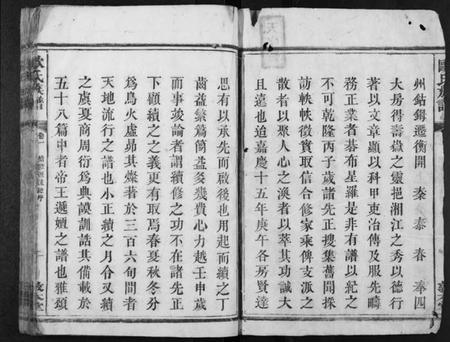 州鈷鉧遷衡開　秦　泰　春　奉四
大房得壽嶽之靈挹湘江之秀以德行
著以文章顯以科甲吏治傳及服先疇
務正業者碁布星羅是非有譜以紀之
不可乾隆丙子歲諸先正搜集舊聞採
訪軼軼徵實取信合修家乘俾支派之
散者以聚人心之渙者以萃其功誠大
且遠也迨嘉慶十五年庚午各房賢達
思有以承先而啟後也用起而續之丁
齒益繁篇簡益夥幾費心力越壬申歲
而事竣論者謂續修之功不在諸先正
下顧續之之義更有取焉春夏秋冬分
為鳥火虛昴其燦著於三百六旬間者
天地流行之譜也小正續之月令又續
之虞夏商周衍為典謨訓誥其備載於
五十八篇中者帝王遞嬗之譜也雅頌
歐氏族譜
卷一
敦大堂